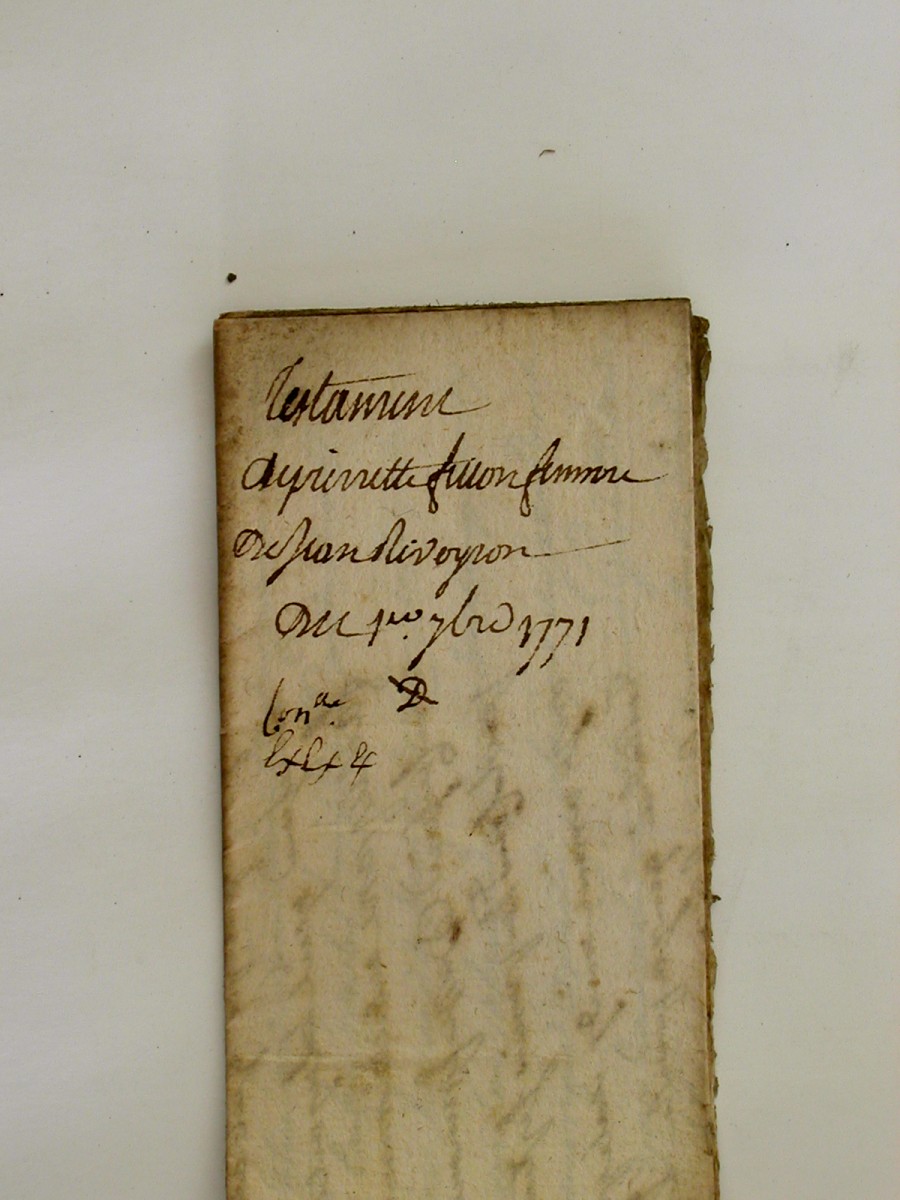 Testament
de pierrette fillion femme
De Jean Rivoyron
Du 1er 7bre 1771
Con.lle D